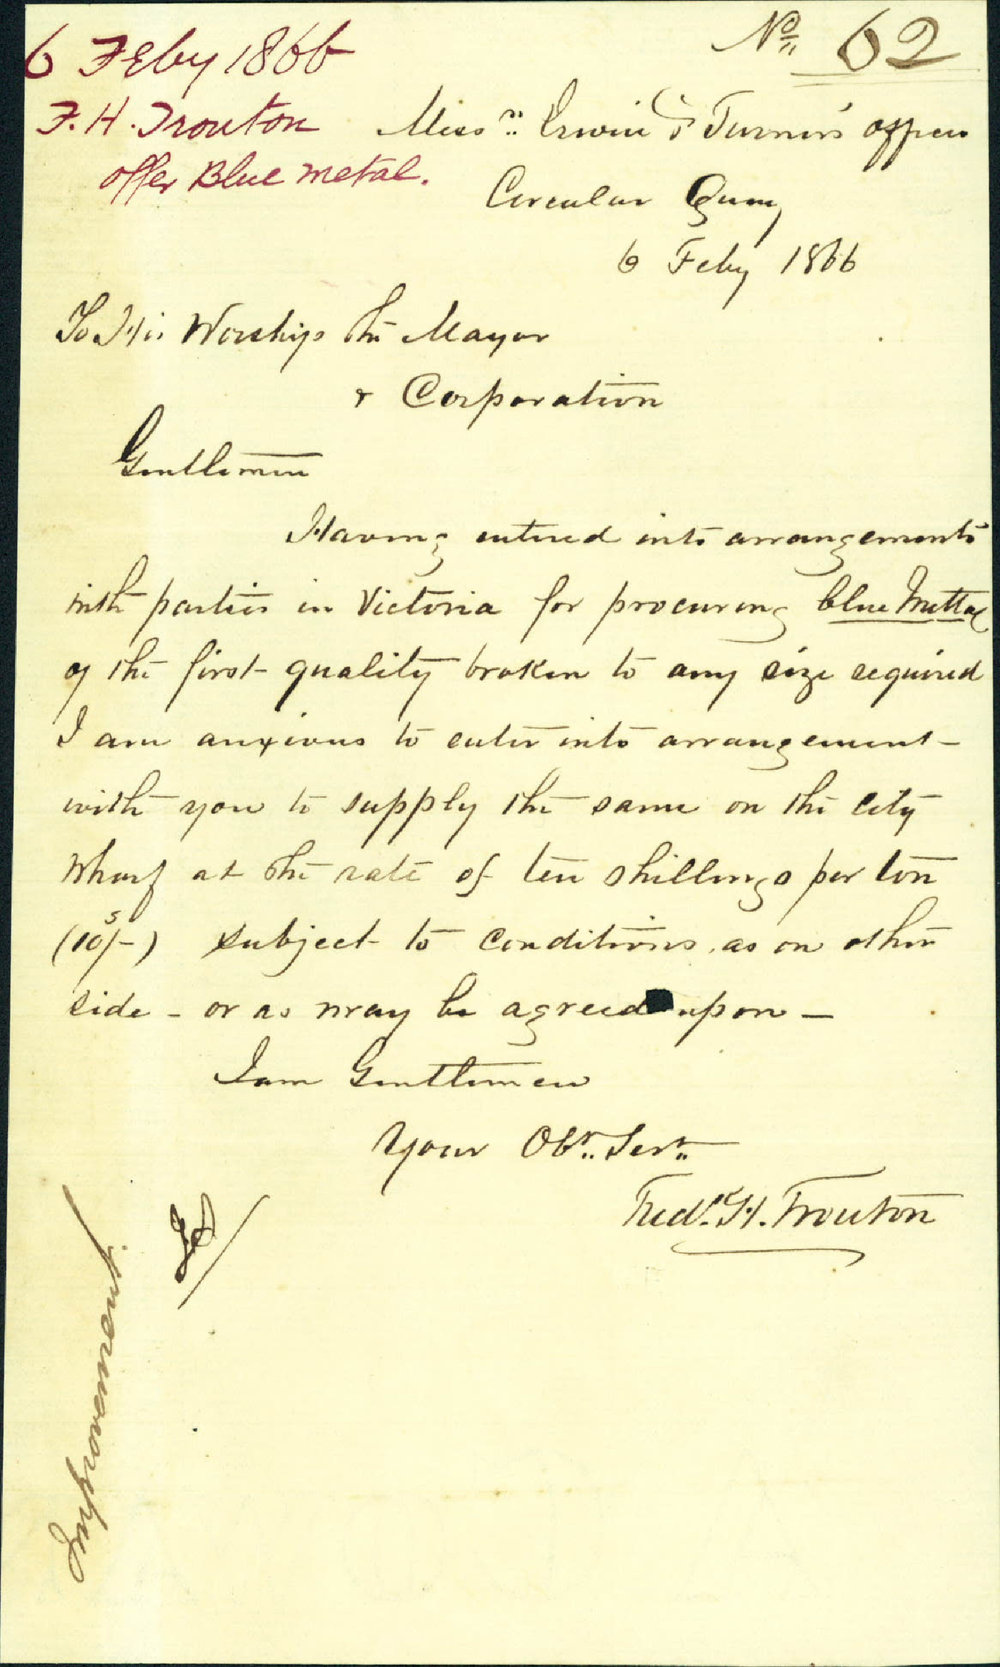 6 Feby 1866
F. H. Trouton
offer Blue metal.
No. 62
Messrs. Irwin & Turner's offices
Circular Quay
6 Feby 1866
To His Worship the Mayor
& Corporation
Gentlemen
Having entered into arrangements
with parties in Victoria for procuring blue Mettal
of the first quality broken to any size required
I am anxious to enter into arrangement
with you to supply the same on the City
Wharf at the rate of ten shillings per ton
(10s/-) subject to conditions as on other
side - or as may be agreed upon —
I am Gentlemen
Your Obt. Servt.
Fredk. H. Trouton
Improvement.